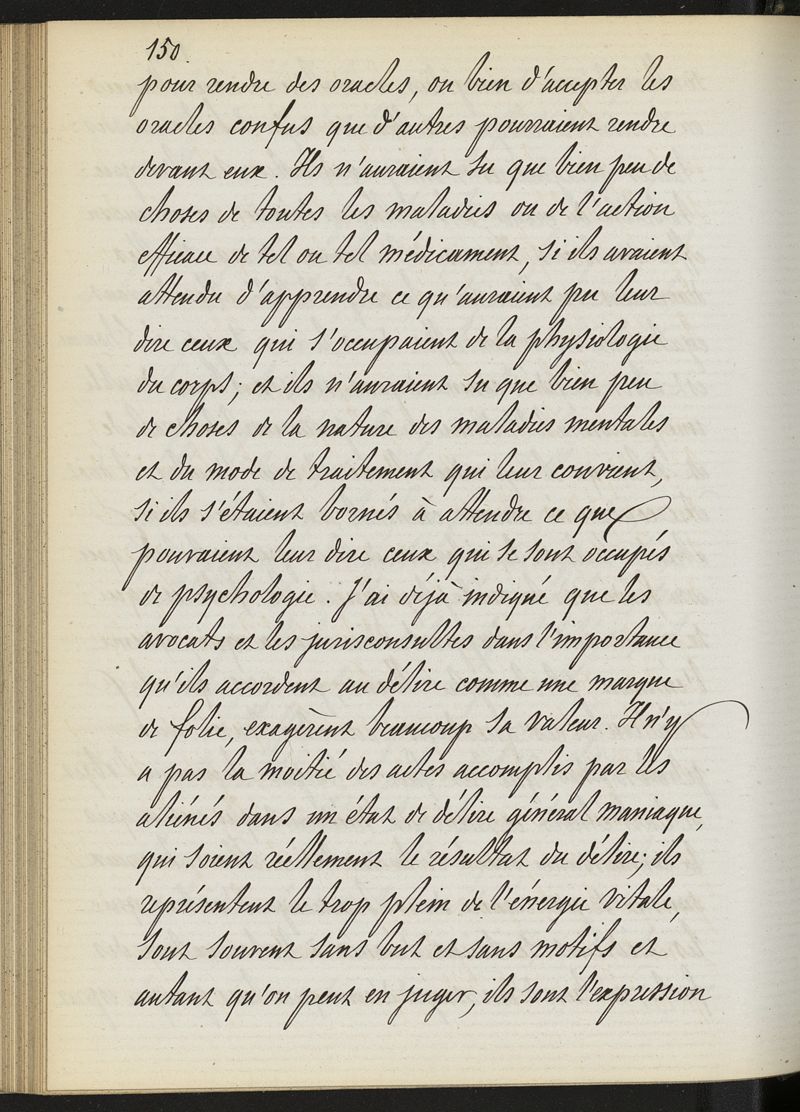 150.
pour rendre des oracles, ou bien d'accepter les
oracles confus que d'autres pourraient rendre
devant eux. Ils n'auraient su que bien peu de
choses de toutes les maladies ou de l'action
efficace de tel ou tel médicament, si ils avaient
attendu d'apprendre ce qu'auraient pu leur
dire ceux qui s'occupaient de la physiologie
du corps; et ils n'auraient su que bien peu
de choses de la nature des maladies mentales
et du mode de traitement qui leur convient,
si ils s'étaient bornés à attendre ce que
pouvaient leur dire ceux qui se sont occupés
de psychologie. J'ai déjà indiqué que les
avocats et les jurisconsultes dans l'importance
qu'ils accordent au délire comme une marque
de folie, exagèrent beaucoup sa valeur. Il n'y
a pas la moitié des actes accomplis par les
aliénés dans un état de délire général maniaque,
qui soient réellement le résultat du délire; ils
représentent le trop plein de l'énergie vitale,
sont souvent sans but et sans motifs et
autant qu'on peut en juger, ils sont l'expression